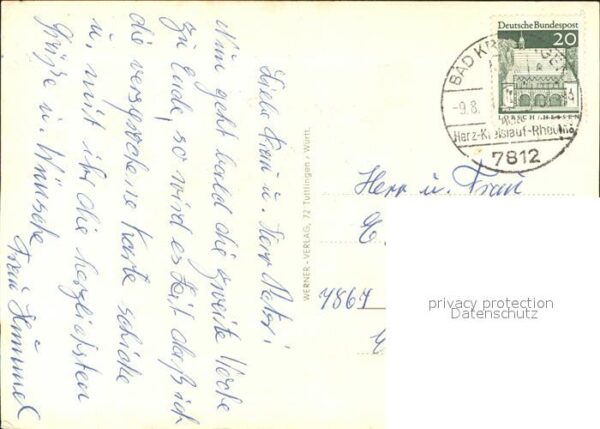 Liebe Frau u. Herr
Nun geht bald die zweite Woche
zu Ende, so wird es Zeit daß ich
die versprochene Karte schicke
u. mit ihr die herzlichsten
Grüße u. Wünsche
Frau Himmel
WERNER-VERLAG, 72 Tuttlingen / Württ.
Deutsche Bundespost
20
LORSCH / HESSEN
BAD KR
-9.8.
Herz-Kreislauf-Rheuma
7812
Herr u. Frau
E.
7867
privacy protection
Datenschutz